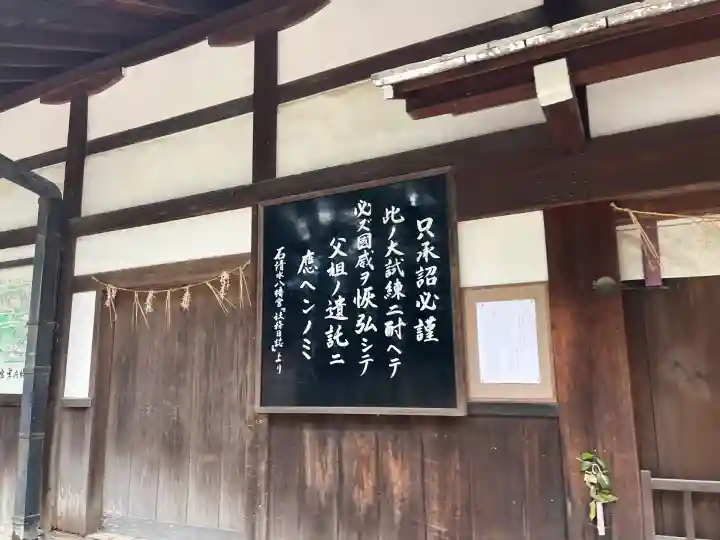 只承詔必謹
此ノ大試練ニ耐ヘテ
必ズ國威ヲ恢弘シテ
父祖ノ遺託ニ
應ヘンノミ
石清水八幡宮「社務日誌」より